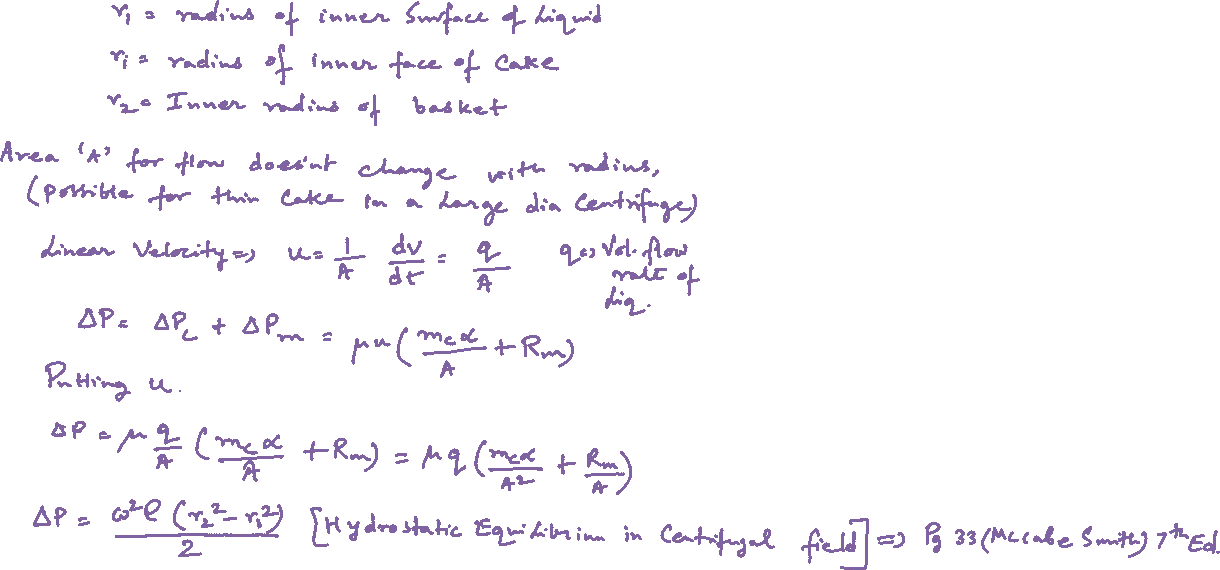 r₁ = radius of inner Surface of Liquid
rᵢ = radius of inner face of Cake
r₂ = Inner radius of basket
Area 'A' for flow does'nt change with radius,
(possible for thin Cake in a Large dia Centrifuge)
Linear Velocity => u = 1/A dv/dt = q/A q => Vol. flow rate of Liq.
ΔP = ΔP_c + ΔP_m = μu (m_c α/A + R_m)
Putting u.
ΔP = μ q/A (m_c α/A + R_m) = μq (m_c α/A² + R_m/A)
ΔP = ω²ρ (r₂² - r₁²)/2 [Hydrostatic Equilibrium in Centrifugal field] => Pg 33 (McCabe Smith) 7th Ed.